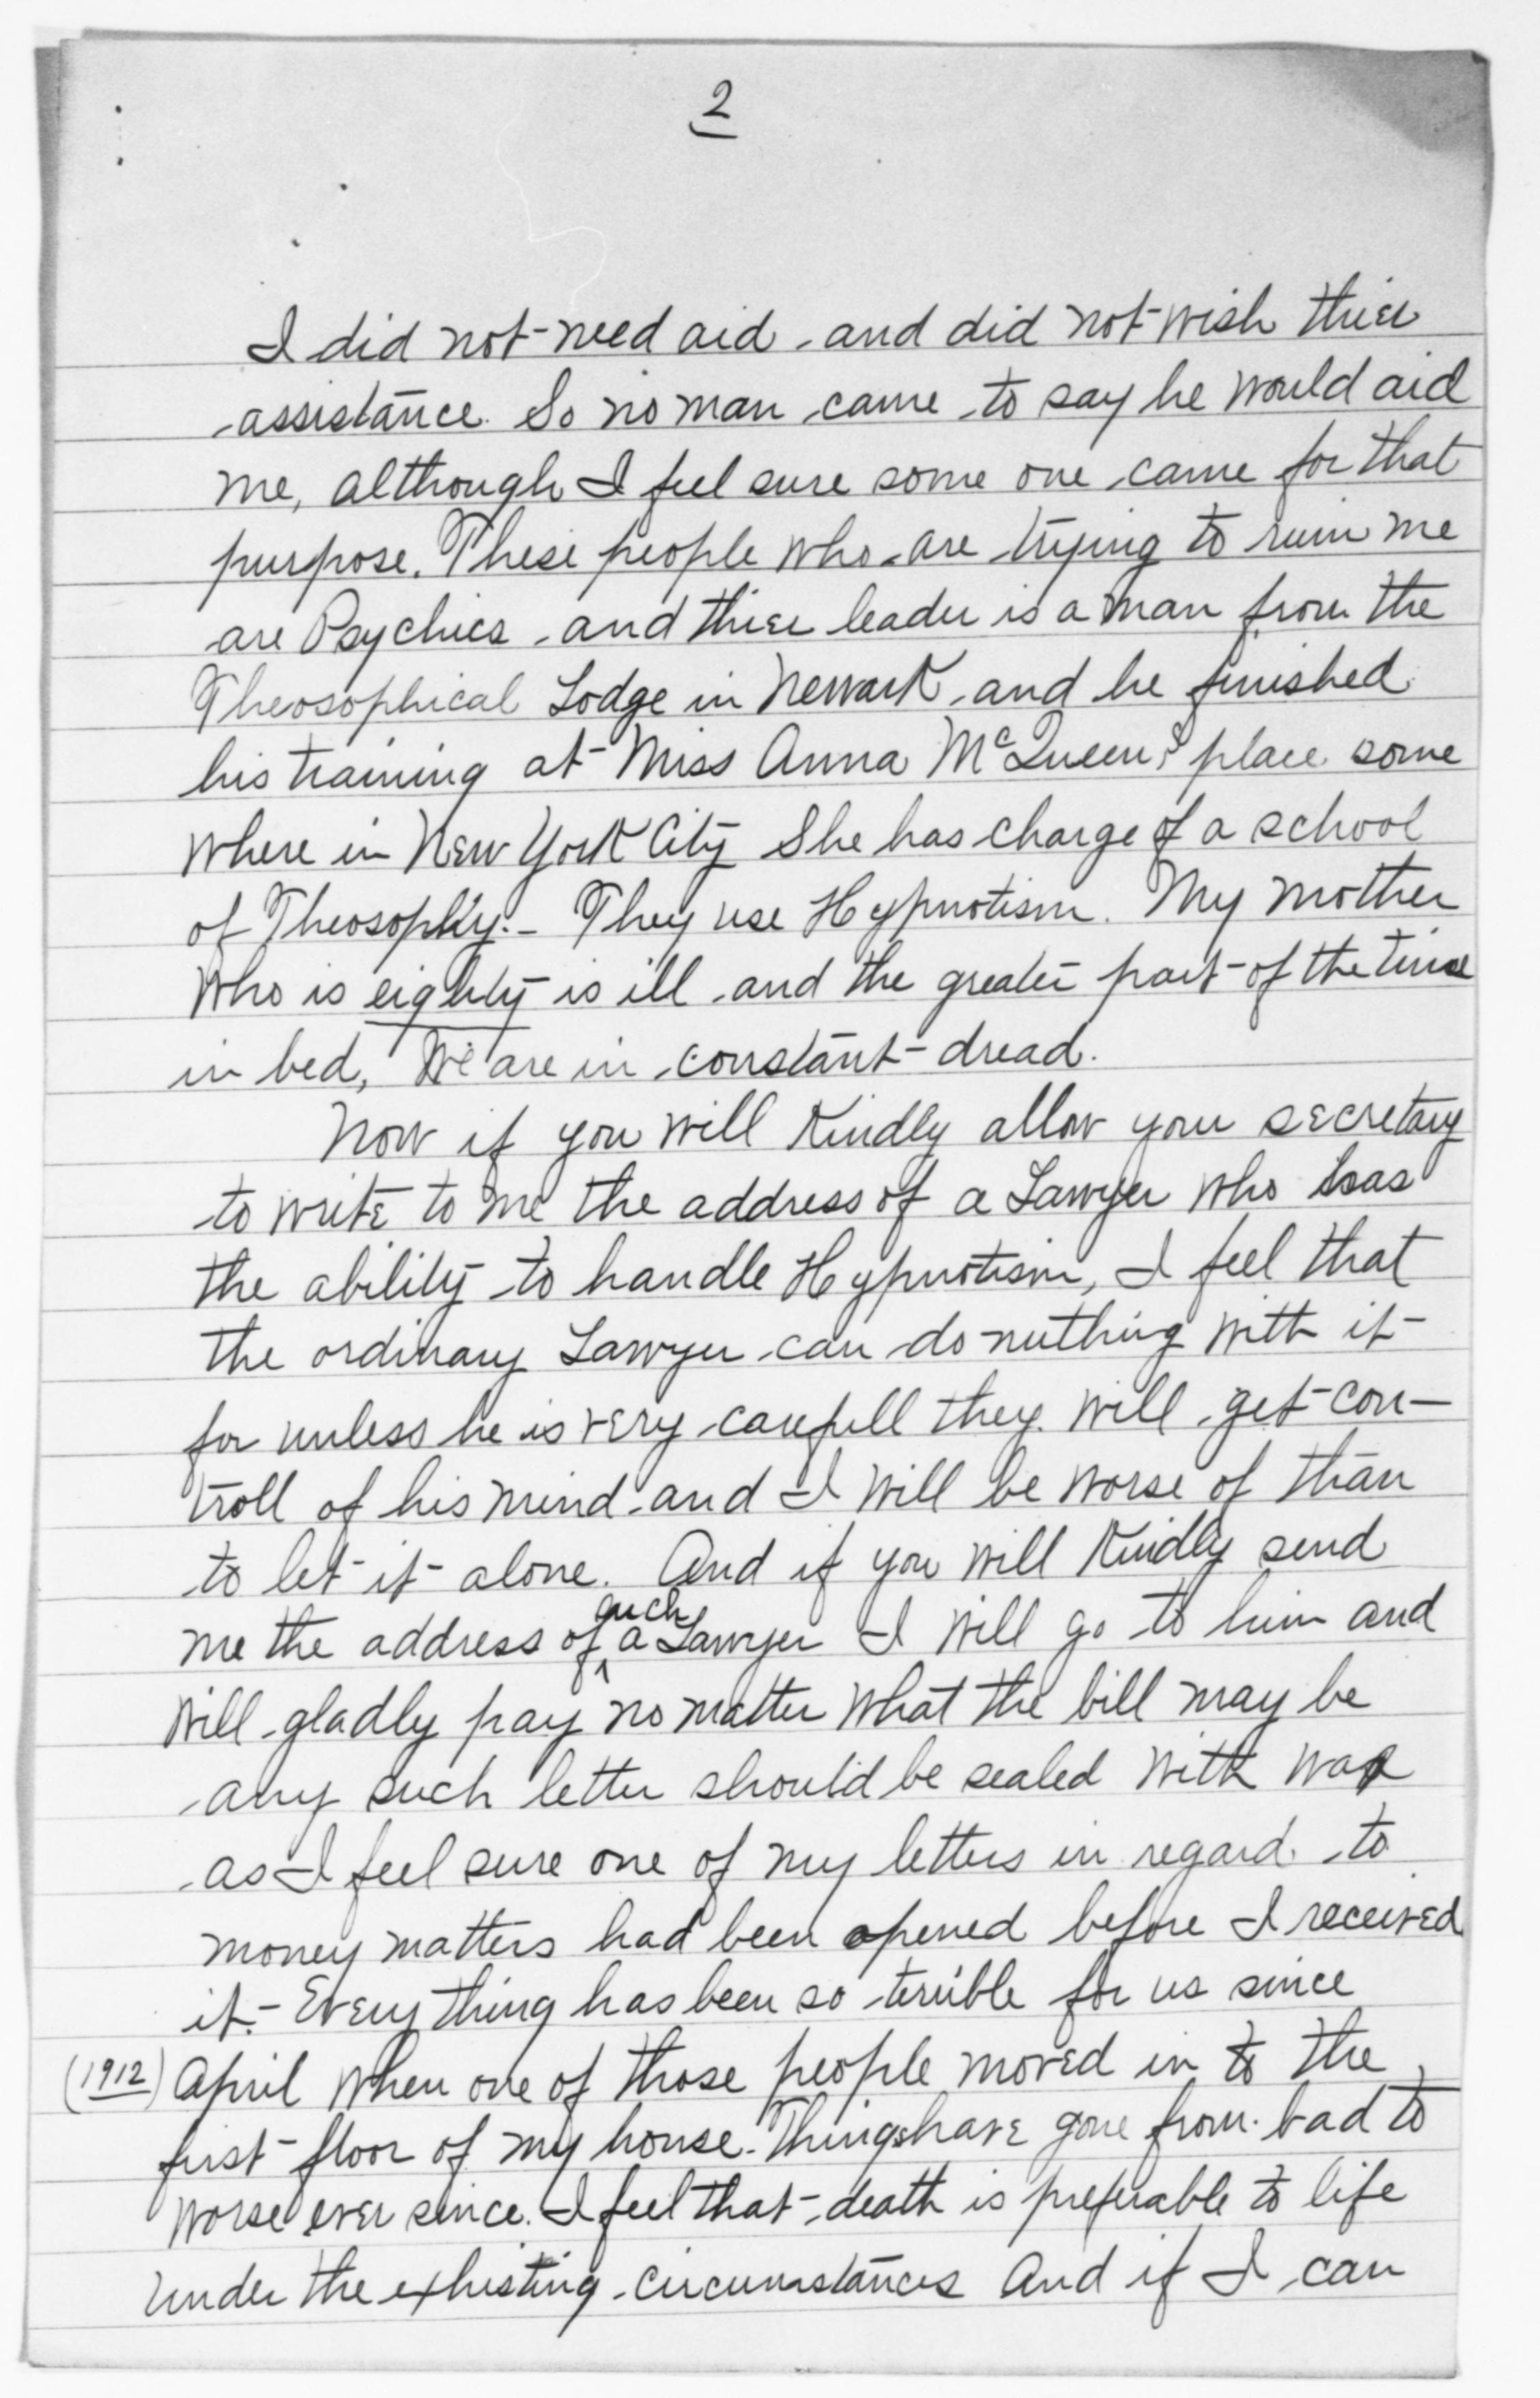 2
I did not need aid and did not wish thier
assistance. So no man came to say he would aid
me, although I feel sure some one came for that
purpose. These people who are trying to ruin me
are Psychics and thier leader is a man from the
Theosophical Lodge in Newark and he finished
his training at Miss Anna McQueens place some
where in New York City She has charge of a school
of Theosophy.- They use Hypnotism. My mother
who is eighty is ill and the greater part of the time
in bed, We are in constant dread.
Now if you will kindly allow your secretary
to write to me the address of a Lawyer who has
the ability to handle Hypnotism, I feel that
the ordinary Lawyer can do nuthing with it
for unless he is very carefull they will get con-
troll of his mind and I will be worse of than
to let it alone. And if you will kindly send
such
me the address of a Lawyer I will go to him and
will gladly pay no matter what the bill may be
any such letter should be sealed with wax
as I feel sure one of my letters in regard to
money matters had been opened before I received
it.- Every thing has been so terrible for us since
(1912) April when one of those people moved in to the
first floor of my house. Things have gone from bad to
worse ever since. I feel that death is preferable to life
under the exhisting circumstances And if I can